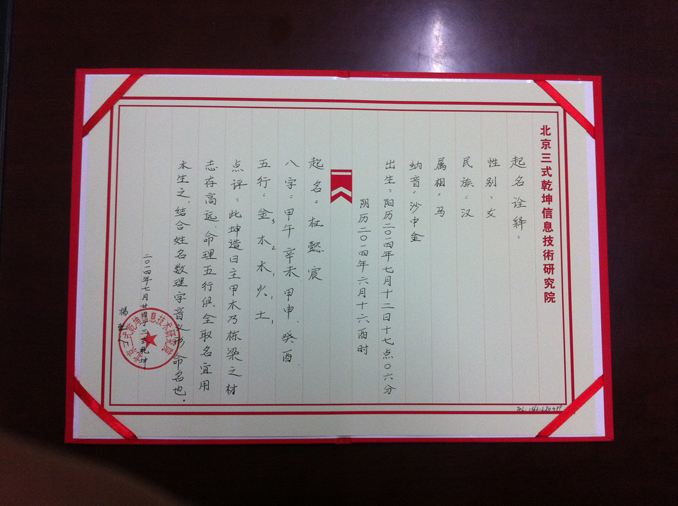 北京三式乾坤信息技術研究院
起名诠释:
性别:女
民族:汉
属相:马
纳音:沙中金
出生:阳历二〇一四年七月十二日十七点〇六分
阴历二〇一四年六月十六酉时
起名:杜懿宸
八字:甲午 辛未 甲申 癸酉
五行:金3 木2 水1 火1 土1
点评:此坤造日主甲木乃栋梁之材
志存高远,命理五行俱全取名宜用
木生之,结合姓名数理字音义形命名也。
二〇一四年七月